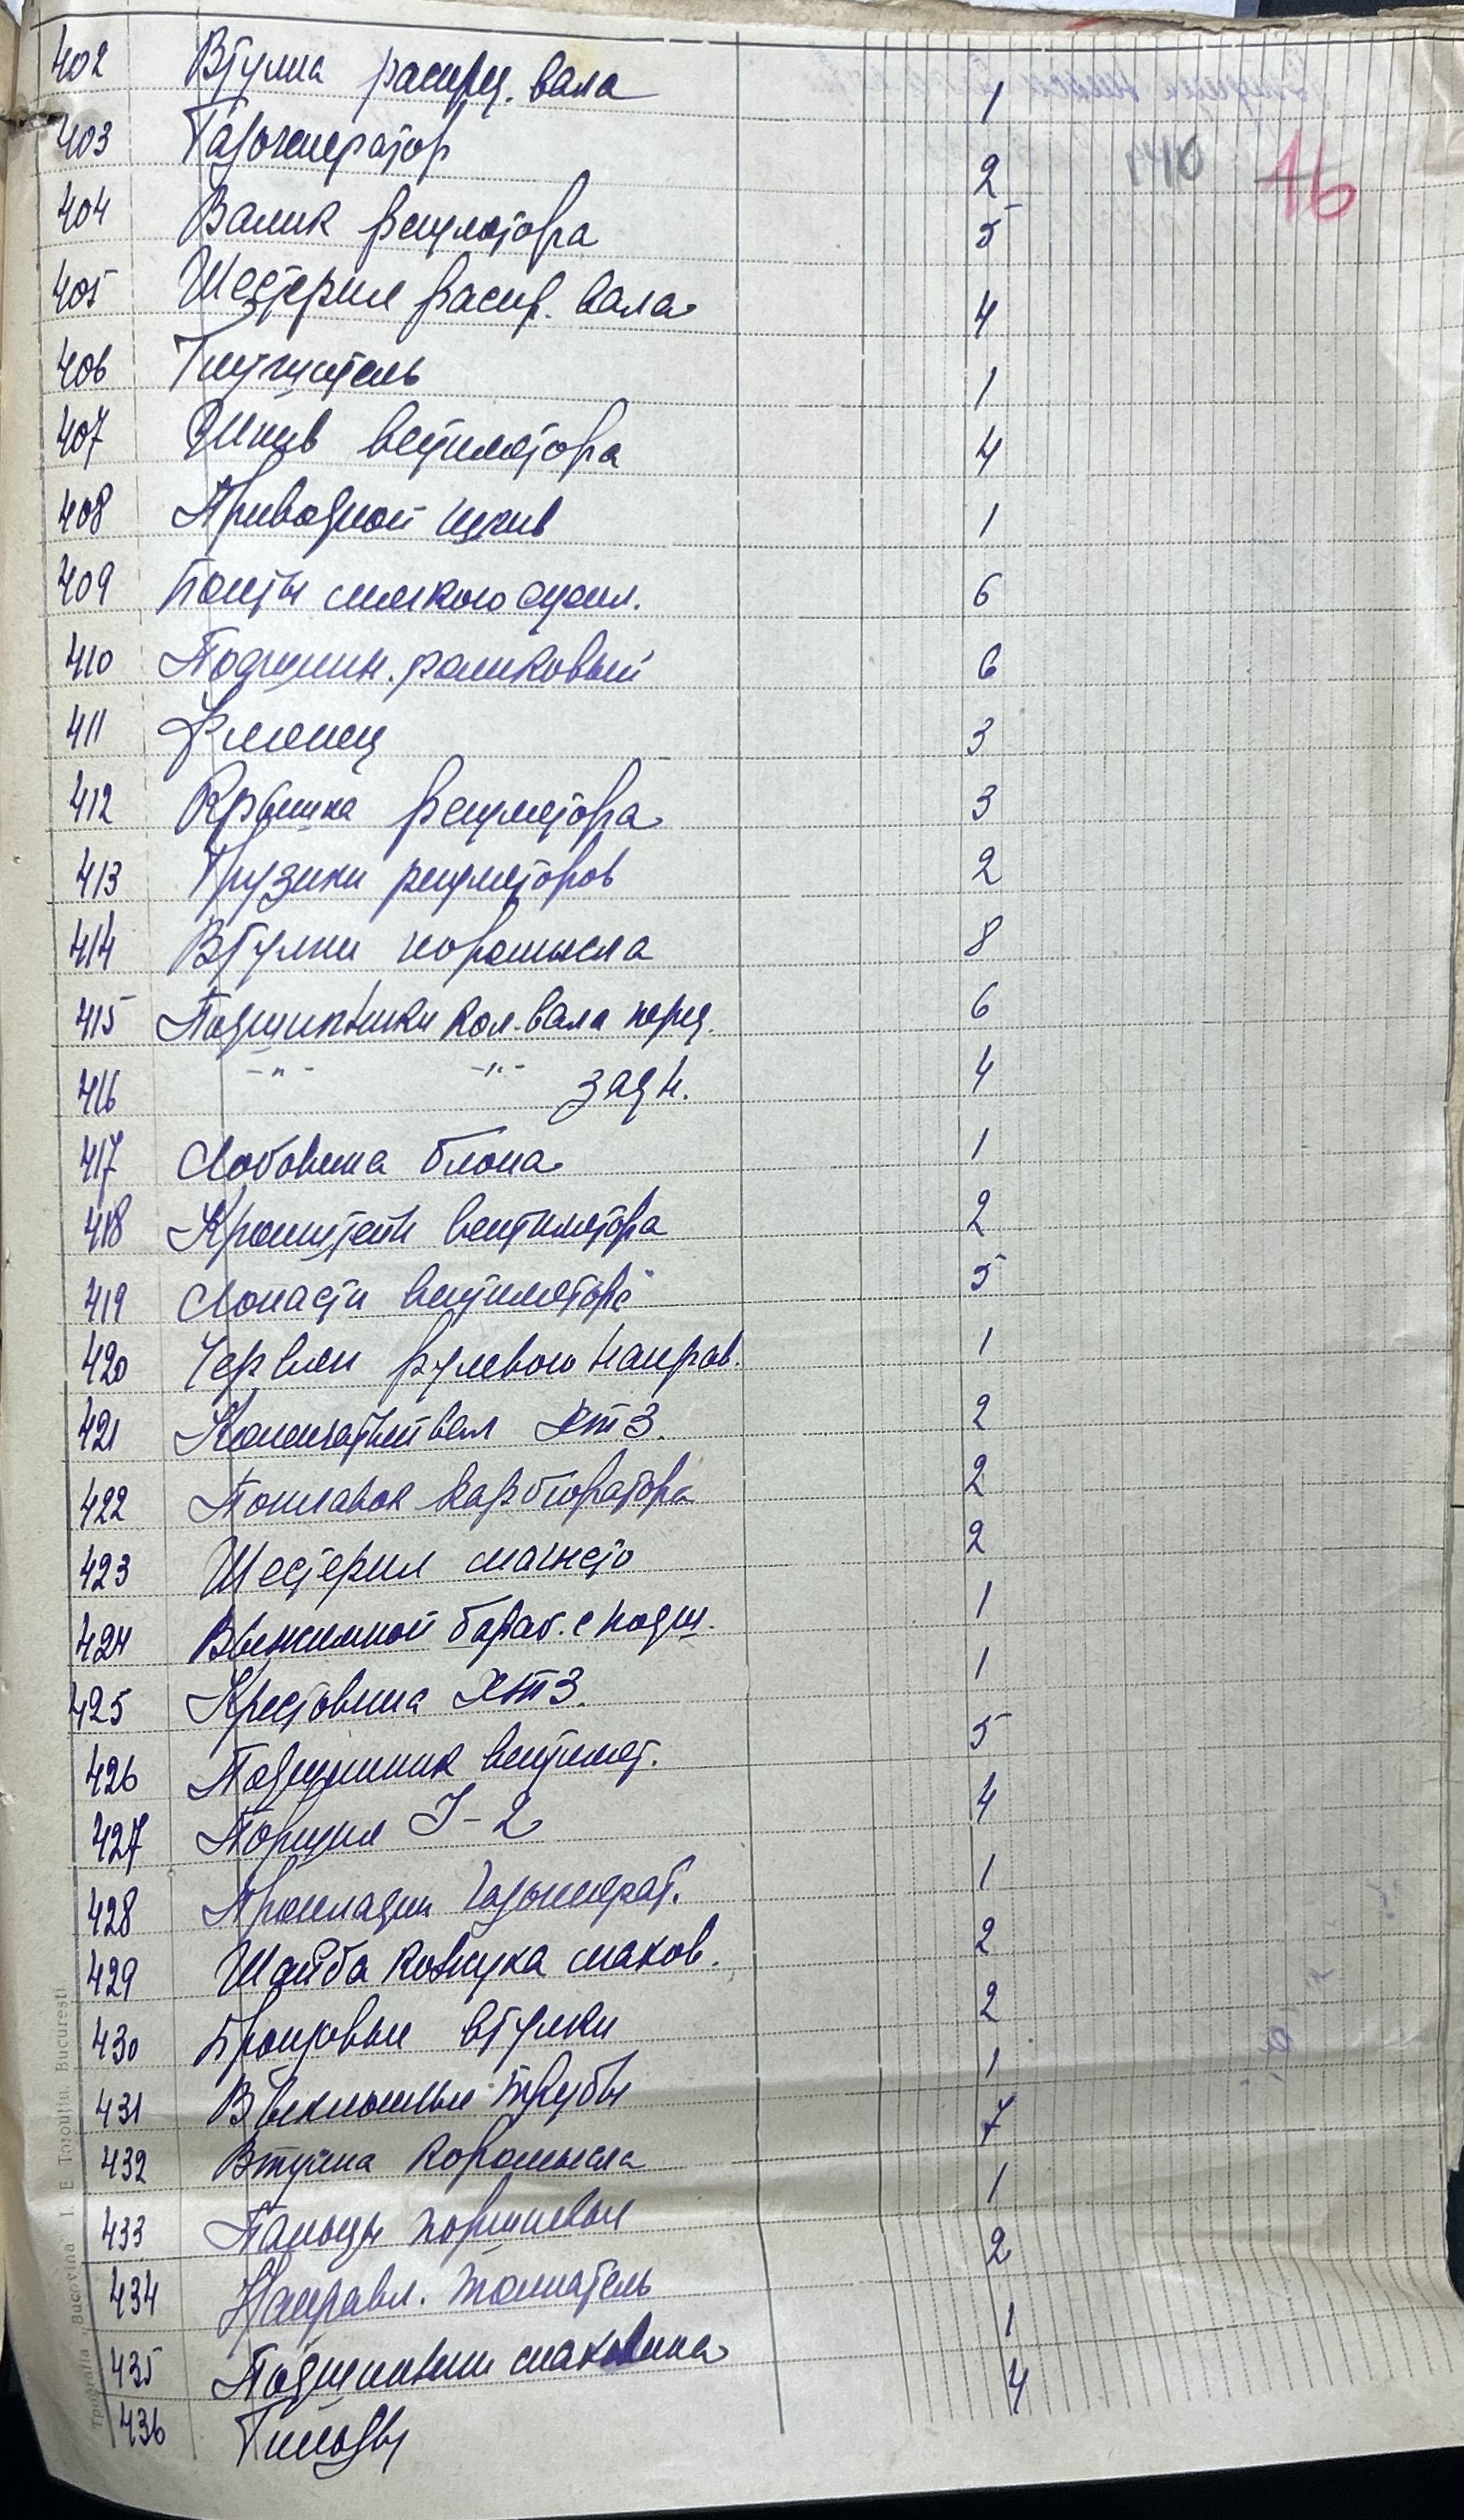 402 Втулка распред. вала 1
403 Газогенератор 2
404 Валик регулятора 5
405 Шестерня распр. вала 4
406 Глушитель 1
407 Шкив вентилятора 4
408 Приводной шкив 1
409 Болты 6
410 Подшипн. роликовый 6
411 Фланец 3
412 Крышка регулятора 3
413 Грузики регуляторов 2
414 Втулки коромысла 8
415 Подшипники кол. вала перед. 6
416 -"- -"- задн. 4
417 Лобовина блока 1
418 Кронштейн вентилятора 2
419 Лопасти вентилятора 5
420 Червяк рулевого направ. 1
421 Коленчатый вал ХТЗ. 2
422 Поплавок карбюратора 2
423 Шестерня магнето 2
424 Выжимной бараб. с подш. 1
425 Крестовина ХТЗ. 1
426 Подшипник вентилят. 5
427 Поршня У-2 4
428 Прокладки газогенерат. 1
429 Шайба кожуха махов. 2
430 Бронзовые втулки 2
431 Выхлопные трубы 1
432 Втулка коромысла 7
433 Пальцы поршневые 1
434 Направл. толкатель 2
435 Подшипники маховика 1
436 4
140 16
Tipografia „Bucovina" I. E. Torouțiu, Bucuresti